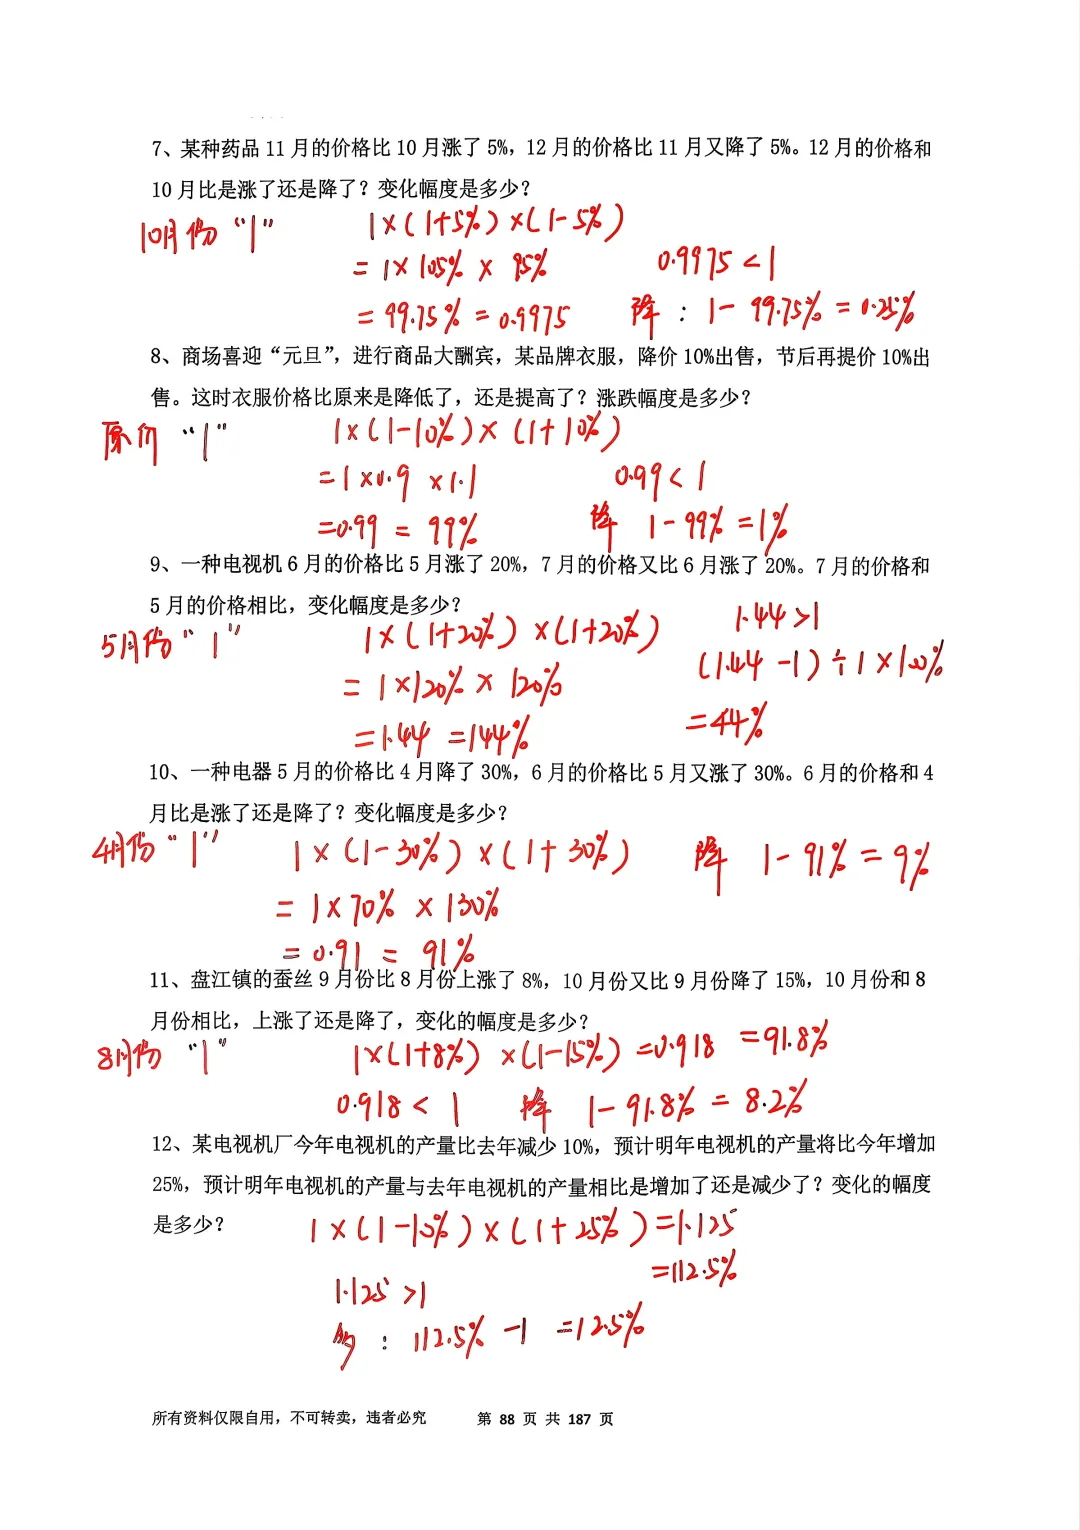 7、某种药品 11 月的价格比 10 月涨了 5%，12 月的价格比 11 月又降了 5%。12 月的价格和
10 月比是涨了还是降了？变化幅度是多少？
10月份 “1”
1×(1+5%)×(1-5%)
=1×105%×95%
0.9975<1
=99.75%=0.9975
降：1-99.75%=0.25%
8、商场喜迎“元旦”，进行商品大酬宾，某品牌衣服，降价 10%出售，节后再提价 10%出
售。这时衣服价格比原来是降低了，还是提高了？涨跌幅度是多少？
原价 “1”
1×(1-10%)×(1+10%)
=1×0.9×1.1
0.99<1
=0.99=99%
降 1-99%=1%
9、一种电视机 6 月的价格比 5 月涨了 20%，7 月的价格又比 6 月涨了 20%。7 月的价格和
5 月的价格相比，变化幅度是多少？
5月份 “1”
1×(1+20%)×(1+20%)
1.44>1
=1×120%×120%
(1.44-1)÷1×100%
=1.44=144%
=44%
10、一种电器 5 月的价格比 4 月降了 30%，6 月的价格比 5 月又涨了 30%。6 月的价格和 4
月比是涨了还是降了？变化幅度是多少？
4月份 “1”
1×(1-30%)×(1+30%)
降 1-91%=9%
=1×70%×130%
=0.91=91%
11、盘江镇的蚕丝 9 月份比 8 月份上涨了 8%，10 月份又比 9 月份降了 15%，10 月份和 8
月份相比，上涨了还是降了，变化的幅度是多少？
8月份 “1”
1×(1+8%)×(1-15%)=0.918 =91.8%
0.918<1 降 1-91.8%=8.2%
12、某电视机厂今年电视机的产量比去年减少 10%，预计明年电视机的产量将比今年增加
25%，预计明年电视机的产量与去年电视机的产量相比是增加了还是减少了？变化的幅度
是多少？
1×(1-10%)×(1+25%)=1.125
=112.5%
1.125>1
多：112.5%-1=12.5%
所有资料仅限自用，不可转卖，违者必究 第 88 页 共 187 页